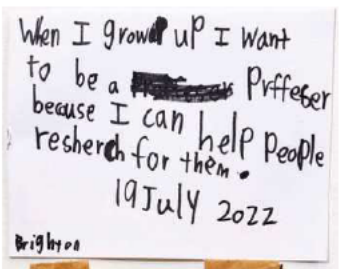 When I grow up I want
to be a Prffeser
because I can help people
reserch for them.
19 July 2022
Brighyon